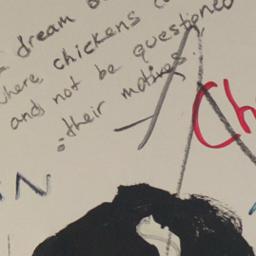 dream
where chickens
and not be questioned
their motives.
Ch
N